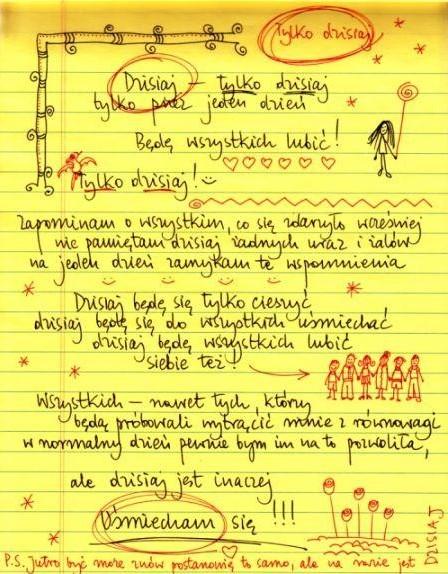 Tylko dzisiaj
Dzisiaj – tylko dzisiaj
tylko przez jeden dzień
Będę wszystkich lubić!
Tylko dzisiaj!
Zapominam o wszystkim, co się zdarzyło wcześniej
nie pamiętam dzisiaj żadnych uraz i żalów
na jeden dzień zamykam te wspomnienia
Dzisiaj będę się tylko cieszyć
dzisiaj będę się do wszystkich uśmiechać
dzisiaj będę wszystkich lubić
siebie też!
Wszystkich – nawet tych, którzy
będą próbowali wytrącić mnie z równowagi
w normalny dzień pewnie bym im na to pozwoliła,
ale dzisiaj jest inaczej
Uśmiecham się!!!
P.S. Jutro być może znów postanowię to samo, ale na razie jest
DZISIAJ